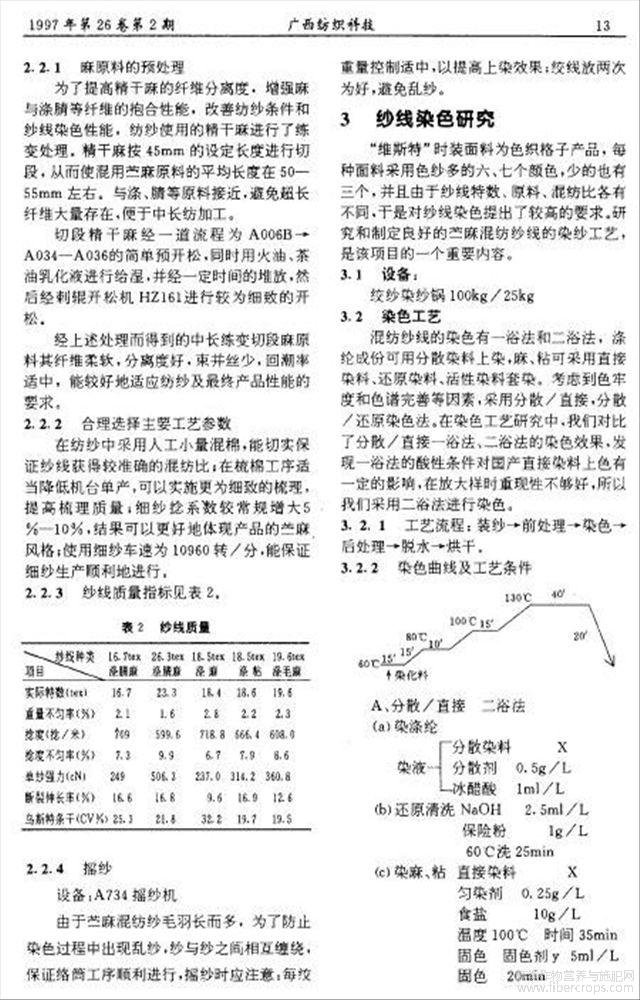 1997年第26卷第2期 广西纺织科技 13
2.2.1 麻原料的预处理
为了提高精干麻的纤维分离度，增强麻
与涤腈等纤维的抱合性能，改善纺纱条件和
纱线染色性能，纺纱使用的精干麻进行了练
变处理。精干麻按45mm的设定长度进行切
段，从而使混用苎麻原料的平均长度在50—
55mm左右。与涤、腈等原料接近，避免超长
纤维大量存在，便于中长纺加工。
切段精干麻经一道流程为A006B→
A034—A036的简单预开松，同时用火油、茶
油乳化液进行给湿，并经一定时间的堆放，然
后经刺辊开松机HZ161进行较为细致的开
松。
经上述处理而得到的中长练变切段麻原
料其纤维柔软，分离度好，束并丝少，回潮率
适中，能较好地适应纺纱及最终产品性能的
要求。
2.2.2 合理选择主要工艺参数
在纺纱中采用人工小量混棉，能切实保
证纱线获得较准确的混纺比；在梳棉工序适
当降低机台单产，可以实施更为细致的梳理，
提高梳理质量；细纱捻系数较常规增大5
%—10%，结果可以更好地体现产品的苎麻
风格；使用细纱车速为10960转／分，能保证
细纱生产顺利地进行。
2.2.3 纱线质量指标见表2。
表2 纱线质量
纱线种类 16.7tex 26.3tex 18.5tex 18.5tex 19.6tex
项目 涤腈麻 涤腈麻 涤麻 涤粘 涤毛麻
实际特数(tex) 16.7 23.3 18.4 18.6 19.6
重量不匀率(%) 2.1 1.6 2.8 2.2 2.3
捻度(捻／米) 709 599.6 718.8 666.4 608.0
捻度不匀率(%) 7.3 9.9 6.7 7.9 8.6
单纱强力(cN) 249 506.3 237.0 314.2 360.8
断裂伸长率(%) 16.6 16.8 9.6 16.9 12.6
乌斯特条干(CV%) 25.3 21.8 32.2 19.7 19.5
2.2.4 摇纱
设备：A734摇纱机
由于苎麻混纺纱毛羽长而多，为了防止
染色过程中出现乱纱，纱与纱之间相互缠绕，
保证络筒工序顺利进行，摇纱时应注意：每绞
重量控制适中，以提高上染效果；绞线放两次
为好，避免乱纱。
3 纱线染色研究
“维斯特”时装面料为色织格子产品，每
种面料采用色纱多的六、七个颜色，少的也有
三个，并且由于纱线特数、原料、混纺比各有
不同，于是对纱线染色提出了较高的要求。研
究和制定良好的苎麻混纺纱线的染纱工艺，
是该项目的一个重要内容。
3.1 设备：
绞纱染纱锅100kg／25kg
3.2 染色工艺
混纺纱线的染色有一浴法和二浴法，涤
纶成份可用分散染料上染，麻、粘可采用直接
染料、还原染料、活性染料套染。考虑到色牢
度和色谱完善等因素，采用分散／直接，分散
／还原染色法。在染色工艺研究中，我们对比
了分散／直接一浴法、二浴法的染色效果，发
现一浴法的酸性条件对国产直接染料上色有
一定的影响，在放大样时重现性不够好，所以
我们采用二浴法进行染色。
3.2.1 工艺流程：装纱→前处理→染色→
后处理→脱水→烘干。
3.2.2 染色曲线及工艺条件
130℃ 40′
100℃ 15′
20′
80℃
10′
60℃ 15′ 15′
↑染化料
A、分散／直接 二浴法
(a)染涤纶
分散染料 X
染液 分散剂 0.5g／L
冰醋酸 1ml／L
(b)还原清洗 NaOH 2.5ml／L
保险粉 1g／L
60℃洗25min
(c)染麻、粘 直接染料 X
匀染剂 0.25g／L
食盐 10g／L
温度100℃ 时间35min
固色 固色剂y 5ml／L
固色 20min
www.fibercrops.com